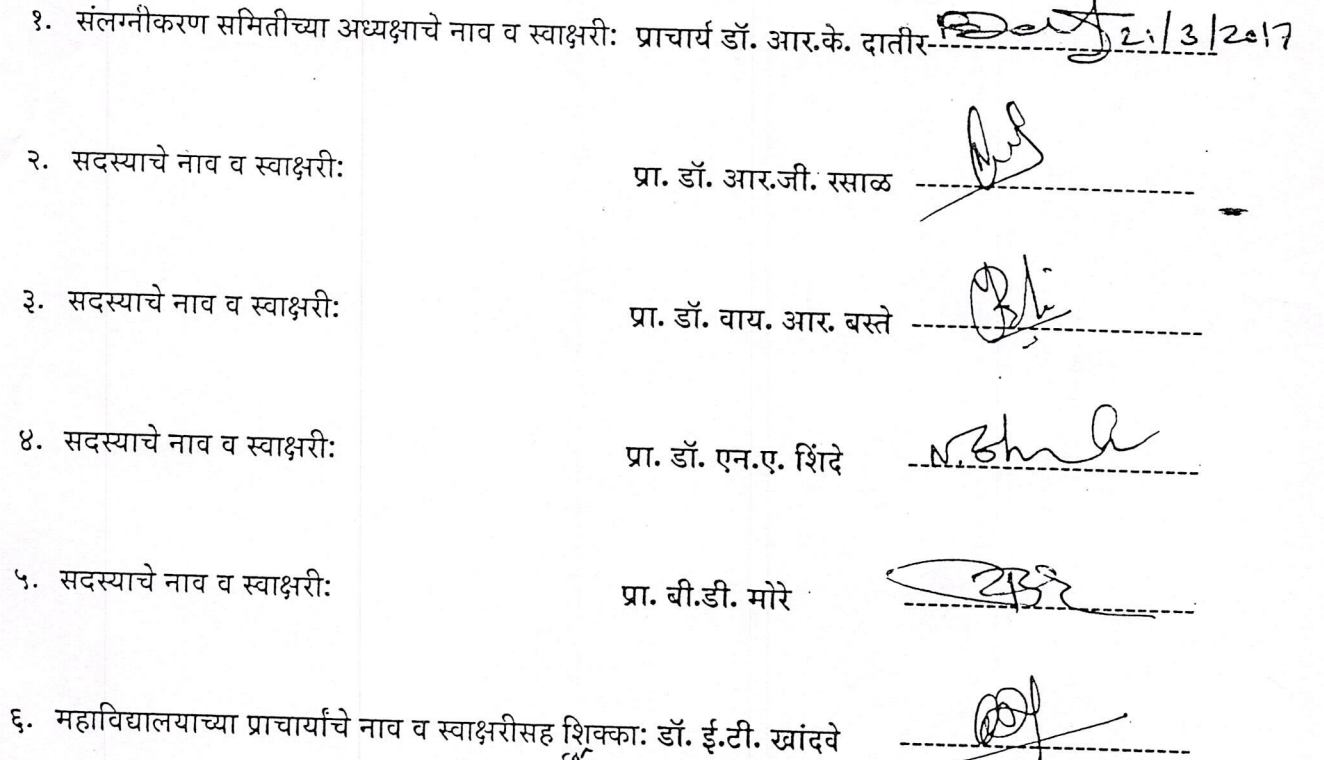 १. संलग्नीकरण समितीच्या अध्यक्षाचे नाव व स्वाक्षरी: प्राचार्य डॉ. आर.के. दातीर 21/3/2017
२. सदस्याचे नाव व स्वाक्षरी: प्रा. डॉ. आर.जी. रसाळ
३. सदस्याचे नाव व स्वाक्षरी: प्रा. डॉ. वाय. आर. बस्ते
४. सदस्याचे नाव व स्वाक्षरी: प्रा. डॉ. एन.ए. शिंदे
५. सदस्याचे नाव व स्वाक्षरी: प्रा. बी.डी. मोरे
६. महाविद्यालयाच्या प्राचार्यांचे नाव व स्वाक्षरीसह शिक्का: डॉ. ई.टी. खांदवे